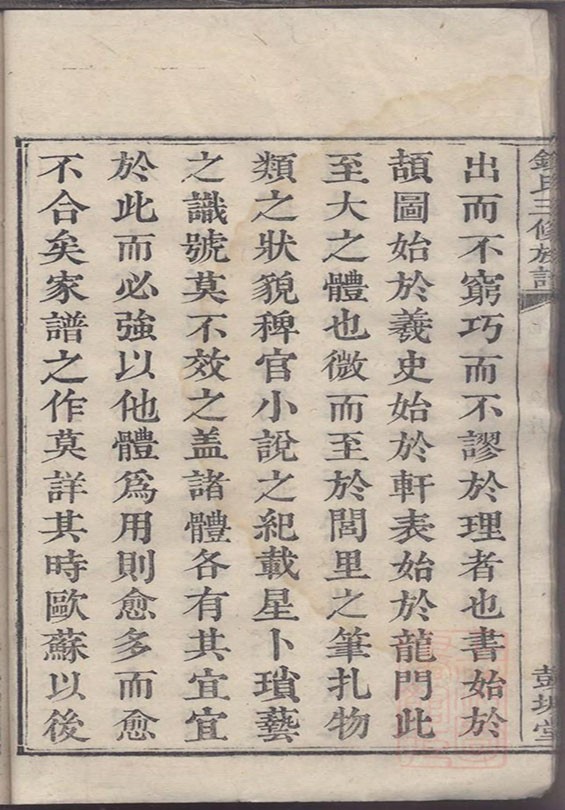 氏三修族譜
出而不窮巧而不謬於理者也書始於
頡圖始於羲史始於軒表始於龍門此
至大之體也微而至於閭里之筆扎物
類之狀貌稗官小說之紀載星卜瑣藝
之識號莫不效之盖諸體各有其宜宜
於此而必強以他體爲用則愈多而愈
不合矣家譜之作莫詳其時歐蘇以後